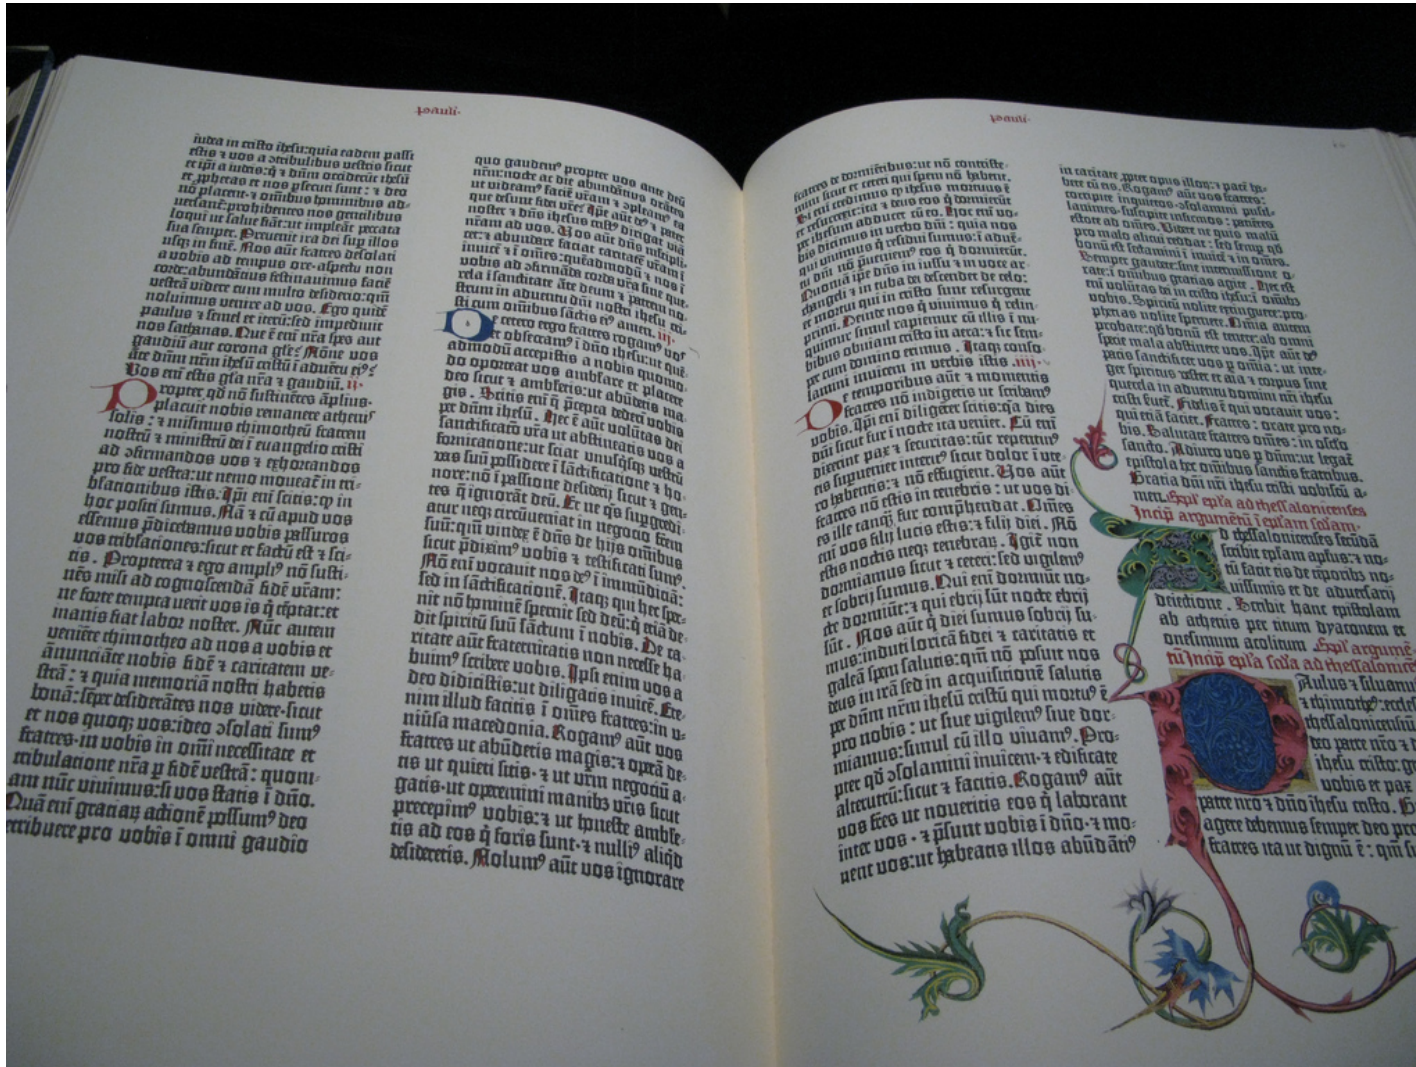 pauli·
iudea in cristo ihesu:quia eadem passi
estis ⁊ vos a ↄtribulibus vestris sicut
et ip̄i a iudeis:q̄ ⁊ dūm occiderūt ihesū
et ꝓphetas et nos ꝑsecuti sunt: ⁊ deo
nō placent·⁊ om̄ibus hominibus ad-
uersant̄:prohibentes nos gentilibus
loqui ut salue fiāt:ut impleāt peccata
sua semper. Peruenit ira dei suꝑ illos
usqꝫ in finē. Nos aūt fratres desolati
a vobis ad tempus ore·aspectu non
corde:abundātius festinauimus faciē
vestrā videre cum multo desiderio:qm̄
noluimus venire ad vos. Ego quidē
paulus ⁊ semel et iterū:sed impediuit
nos sathanas. Que ē enī nr̄a spes aut
gaudiū aut corona glīe? Nōne vos
āte dūm nr̄m ihesū cristū ī aduētu eiꝰ?
Vos enī estis glīa nr̄a ⁊ gaudiū. ij·
Propter qd̄ nō sustinētes āplius·
placuit nobis remanere athenis
solis: ⁊ misimus thimotheū fratrem
nostrū ⁊ ministrū dei ī euangelio cristi
ad ↄfirmandos vos ⁊ exhortandos
pro fide vestra:ut nemo moueat̄ in tri-
bulationibus istis. Ip̄i enī scitis:qꝫ in
hoc positi sumus. Nā ⁊ cū apud vos
essemus p̄dicebamus vobis passuros
vos tribulationes:sicut et factū est ⁊ sci-
tis. Propterea ⁊ ego ampliꝰ nō susti-
nēs misi ad cognoscendā fidē vr̄am:
ne forte tempta uerit vos is q̄ tēptat:et
inanis fiat labor noster. Nūc autem
veniēte thimotheo ad nos a vobis et
ānunciāte nobis fidē ⁊ caritatem ve-
strā: ⁊ quia memoriā nostri habetis
bonā:semꝑ desiderātes nos videre·sicut
et nos quoqꝫ vos:ideo ↄsolati sumꝰ
fratres·in vobis in om̄i necessitate et
tribulatione nr̄a ꝑ fidē vestrā: quoni-
am nūc viuimus:si vos statis ī dn̄o.
Quā enī gratiaꝝ actionē possumꝰ deo
retribuere pro vobis ī omni gaudio
quo gaudemꝰ propter vos ante deū
nr̄m:nocte ac die abundātius orātes
ut videamꝰ faciē vr̄am ⁊ ↄpleamꝰ ea
que desunt fidei vr̄e? Ip̄e aūt deꝰ ⁊ pater
noster ⁊ dn̄s ihesus cristꝰ dirigat viā
nr̄am ad vos. Vos aūt dn̄s multipli-
cet: ⁊ abundare faciat caritatē vr̄am ī
inuicē ⁊ ī om̄es: quēadmodū ⁊ nos ī
vobis ad ↄfirmāda corda vr̄a sine que-
rela ī sanctitate āte deum ⁊ patrem no-
strum in aduentu dn̄i nostri ihesu cri-
sti cum omnibus sāctis eiꝰ amen. iij·
De cetero ergo fratres rogamꝰ vos
et obsecramꝰ ī dn̄o ihesu:ut quē-
admodū accepistis a nobis quomo-
do oporteat vos ambulare et placere
deo sicut ⁊ ambulatis:ut abūdetis ma-
gis. Scitis enī q̄ p̄cepta dederī vobis
per dūm ihesū. Hec ē aūt volūtas dei
sanctificatō vr̄a ut abstineatis vos a
fornicatione:ut sciat unusq̄sqꝫ vestrū
vas suū possidere ī sāctificatione ⁊ ho-
nore:nō ī passione desiderij sicut ⁊ gen-
tes q̄ ignorāt deū. Et ne q̄s supgredi-
atur neqꝫ circūueniat in negocio fr̄em
suū:qm̄ vindex ē dn̄s de hijs om̄ibus
sicut p̄diximꝰ vobis ⁊ testificati sumꝰ.
Nō enī vocauit nos deꝰ ī immūdiciā:
sed in sāctificationē. Itaqꝫ qui hec sper-
nit nō hominē spernit sed deū:q̄ etiā de-
dit spiritū suū sāctum ī nobis. De ca-
ritate aūt fraternitatis non necesse ha-
buimꝰ scribere vobis. Ipsi enim vos a
deo didicistis:ut diligatis inuicē. Ete-
nim illud facitis ī om̄es fratres:in v-
niūsa macedonia. Rogamꝰ aūt vos
fratres ut abūdetis magis:⁊ opā de-
tis ut quieti sitis·⁊ ut vr̄m negociū a-
gatis·ut operemini manibꝫ vr̄is sicut
precepimꝰ vobis:⁊ ut honeste ambule-
tis ad eos q̄ foris sunt·⁊ nulliꝰ aliqd̄
desideretis. Nolumꝰ aūt vos ignorare
pauli·
fratres de dormiētibus:ut nō contriste-
mini sicut et ceteri qui spem nō habent.
Si enī credimus qꝫ ihesus mortuus ē
et resurrexit:ita ⁊ deus eos q̄ dormierūt
per ihesum adducet cū eo. Hoc enī vo-
bis dicimus in verbo dn̄i: quia nos
qui viuimus q̄ residui sumus:ī aduē-
tu dn̄i nō p̄ueniemꝰ eos q̄ dormierūt.
Quoniā ip̄e dn̄s in iussu ⁊ in voce ar-
changeli ⁊ in tuba dei descendet de celo:
et mortui qui in cristo sunt resurgent
primi. Deinde nos q̄ viuimus q̄ relin-
quimur simul rapiemur cū illis ī nu-
bibus obuiam cristo in aera: ⁊ sic sem-
per cum domino erimus. Itaqꝫ conso-
lamini inuicem in verbis istis. iiij·
De temporibus aūt ⁊ momentis
fratres nō indigetis ut scribamꝰ
vobis. Ip̄i enī diligēter scitis:qa dies
dn̄i sicut fur ī nocte ita veniet. Cū enī
dixerint pax ⁊ securitas:tūc repentinꝰ
eis supueniet interitꝰ sicut dolor ī ute-
ro habentis: ⁊ nō effugient. Vos aūt
fratres nō estis in tenebris: ut vos di-
es ille tanqꝫ fur comprehendat. Om̄es
enī vos filij lucis estis: ⁊ filij diei. Nō
estis noctis neqꝫ tenebraꝝ. Igit̄ non
dormiamus sicut ⁊ ceteri: sed vigilemꝰ
et sobrij sumus. Qui enī dormiūt no-
cte dormiūt: ⁊ qui ebrij sūt nocte ebrij
sūt. Nos aūt q̄ diei sumus sobrij su-
mus: induti loricā fidei ⁊ caritatis et
galeā spem salutis:qm̄ nō posuit nos
deus in irā sed in acquisitionē salutis
per dūm nr̄m ihesū cristū qui mortuꝰ ē
pro nobis: ut siue vigilemꝰ siue dor-
miamus:simul cū illo viuamꝰ. Pro-
pter qd̄ ↄsolamini inuicem·⁊ edificate
alterutrū:sicut ⁊ facitis. Rogamꝰ aūt
vos fr̄es ut noueritis eos q̄ laborant
inter vos·⁊ p̄sunt vobis ī dn̄o·⁊ mo-
nent vos:ut habeatis illos abūdātiꝰ
in caritate ꝓpter opus illoꝝ: ⁊ pacē ha-
bete cū eis. Rogamꝰ aūt vos fratres:
corripite inquietos·ↄsolamini pusil-
lanimes·suscipite infirmos: patiētes
estote ad om̄es. Videte ne quis malū
pro malo alicui reddat: sed semꝑ qd̄
bonū est sectamini ī inuicē ⁊ in om̄es.
Semper gaudete:sine intermissione o-
rate:ī om̄ibus gratias agite. Hec est
enī volūtas dei in cristo ihesu:ī om̄ibꝫ
vobis. Spiritū nolite extinguere:pro-
phetias nolite spernere. Om̄ia autem
probate:qd̄ bonū est tenete:ab omni
specie mala abstinete vos. Ip̄e aūt deꝰ
pacis sanctificet vos ꝑ om̄ia: ut inte-
ger spiritus vester et aīa ⁊ corpus sine
querela in aduentu domini nr̄i ihesu
cristi seruet̄. Fidelis ē qui vocauit vos:
qui etiā faciet. Fratres: orate pro no-
bis. Salutate fratres om̄es: in osculo
sancto. Adiuro vos ꝑ dūm:ut legat̄
epistola hec om̄ibus sanctis fratribus.
Gratia dn̄i nr̄i ihesu cristi vobiscū a-
men. Expl' epl̄a ad thessalonicenses
Incip̄ argumētū ī epl̄am scd̄am·
Ad thessalonicenses secūdā
scribit epl̄am apl̄us: ⁊ no-
tū facit eis de tēporibꝫ no-
uissimis et de aduersarij
deiectione. Scribit hanc epistolam
ab athenis per titum dyaconem et
onesimum acolitum. Expl' argumē-
tū Incip̄ epl̄a scd̄a ad thessalonicēs
Paulus ⁊ siluanus
⁊ thimotheꝰ:eccles
thessalonicensiū
deo patre nr̄o ⁊ d
ihesu cristo:g
vobis et pax
patre nr̄o ⁊ dn̄o ihesu cristo. G
agere debemus semper deo pro
fratres ita ut dignū ē: qm̄ su